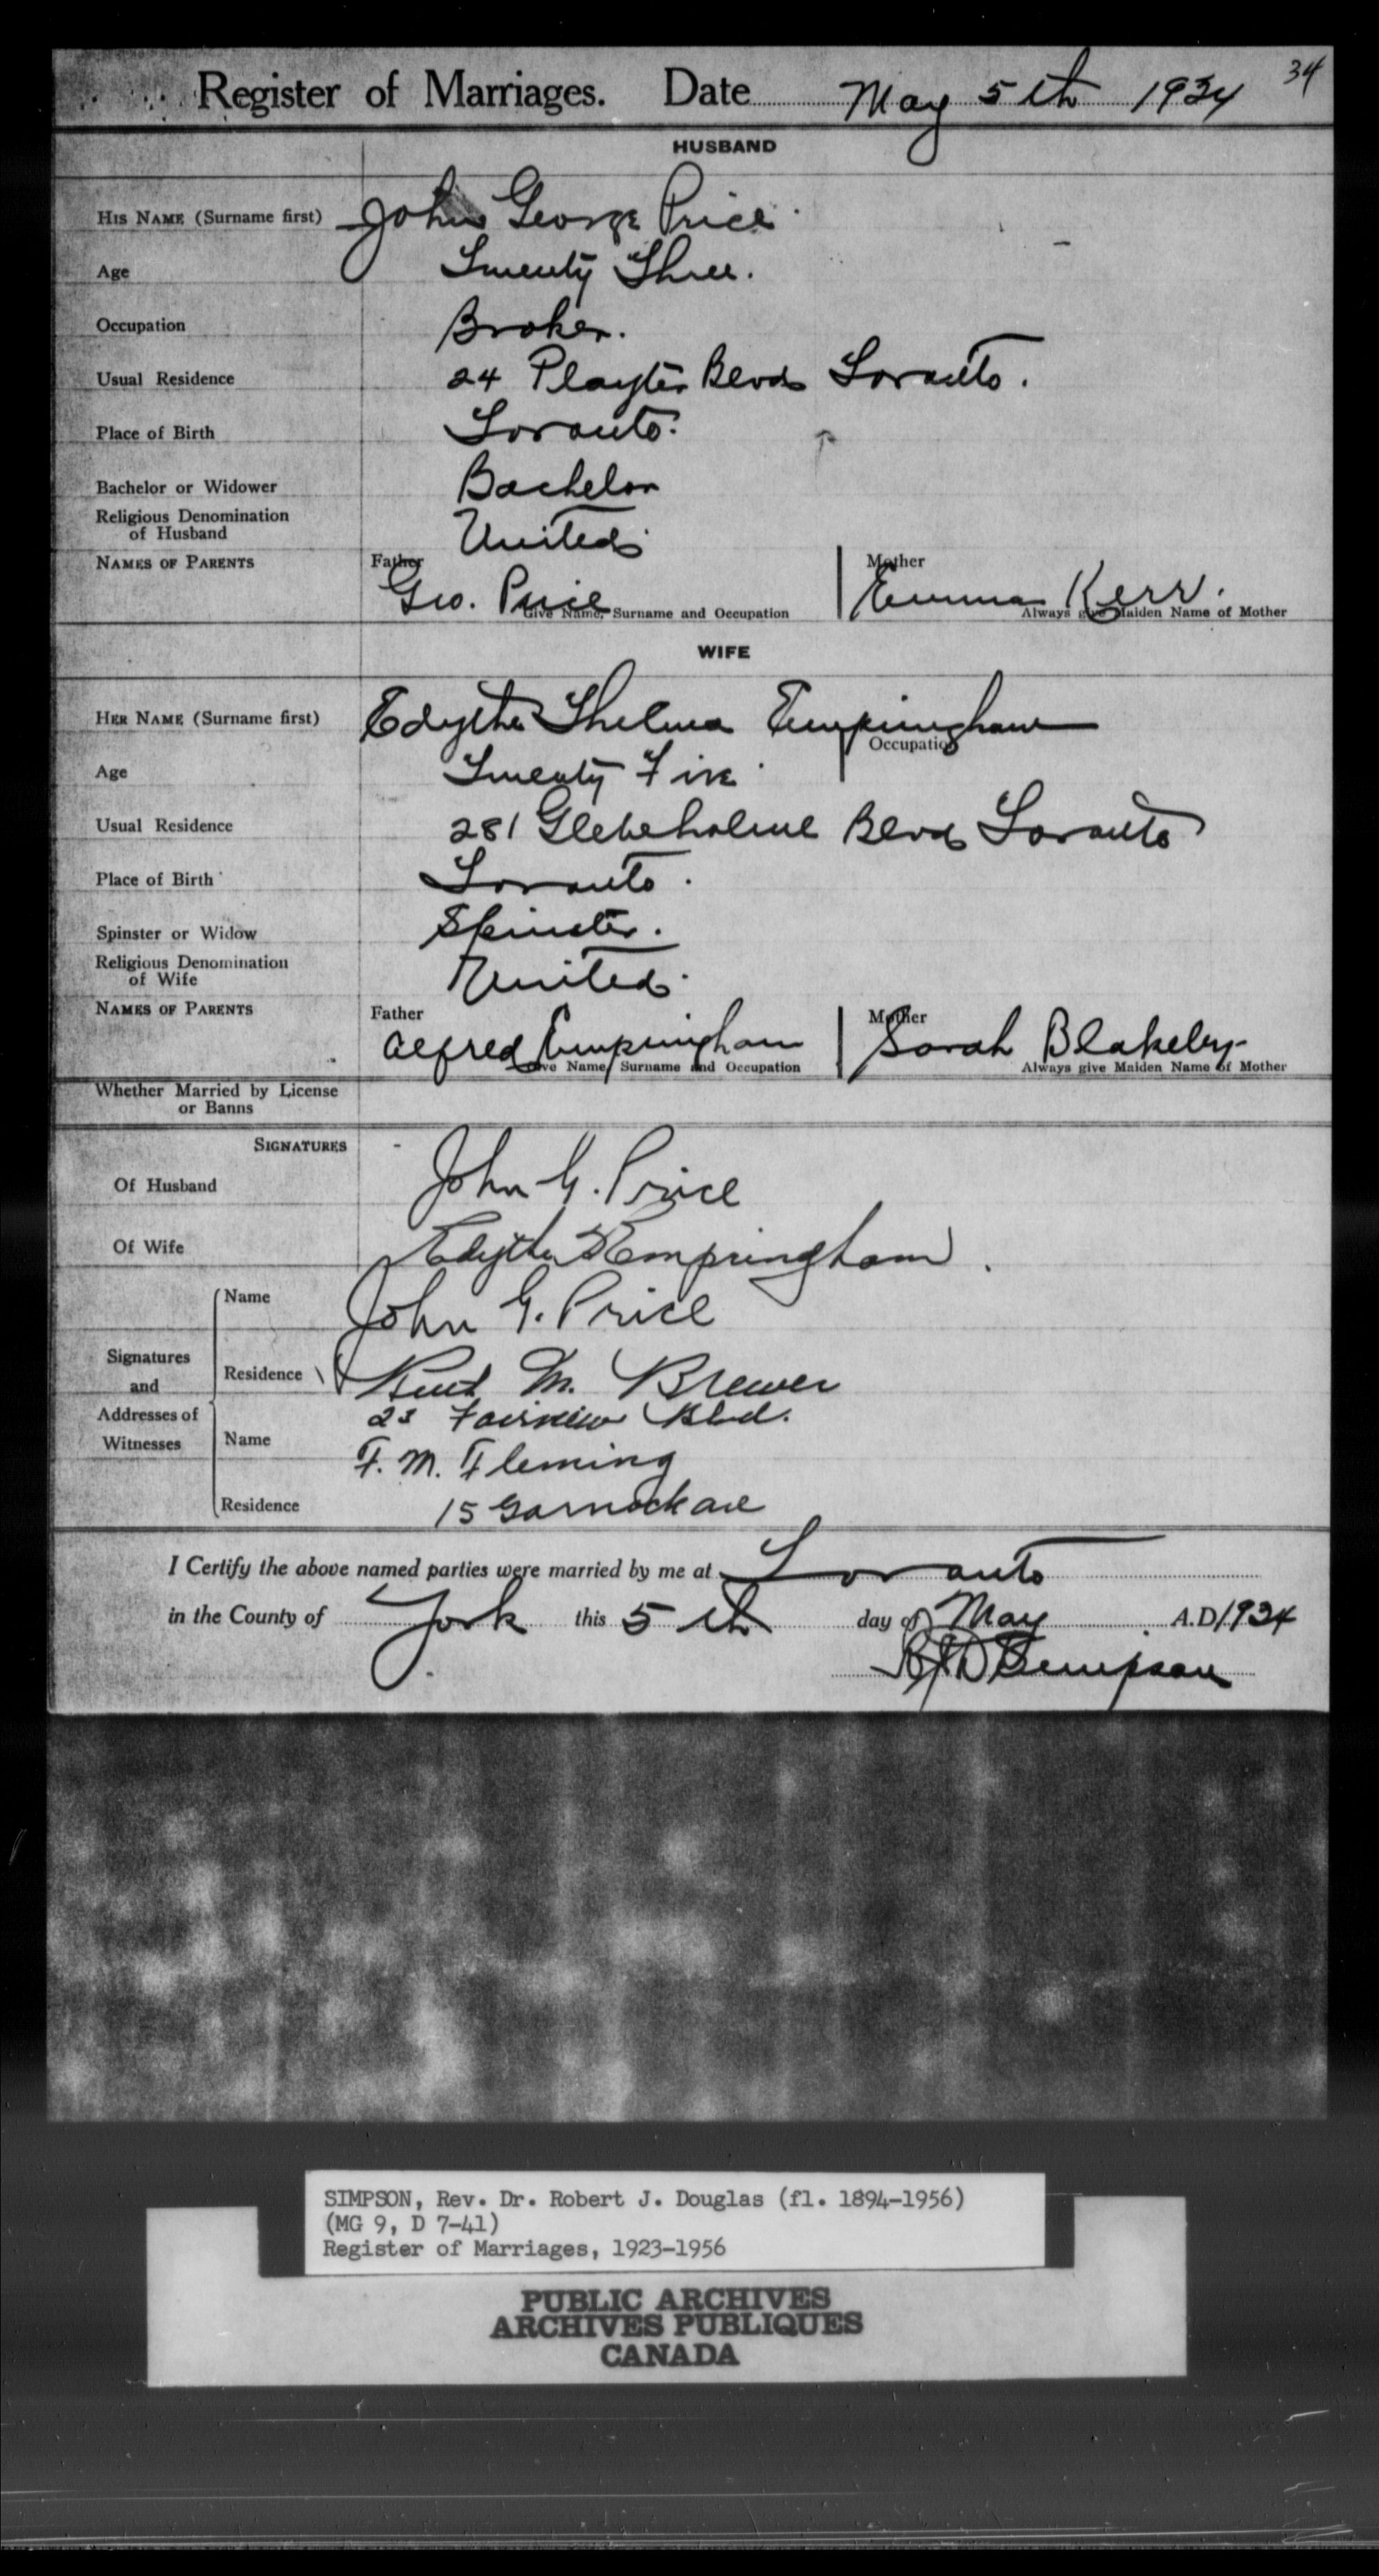 Register of Marriages. Date May 5th 1934 34
HUSBAND
HIS NAME (Surname first) John George Price.
Age Twenty Three.
Occupation Broker.
Usual Residence 24 Playter Blvd Toronto.
Place of Birth Toronto.
Bachelor or Widower Bachelor
Religious Denomination of Husband United.
NAMES OF PARENTS Father Geo. Price Mother Emma Kerr.
Give Name, Surname and Occupation Always give Maiden Name of Mother
WIFE
HER NAME (Surname first) Edythe Thelma Empringham
Occupation
Age Twenty Five
Usual Residence 281 Glebeholme Blvd Toronto
Place of Birth Toronto.
Spinster or Widow Spinster.
Religious Denomination of Wife United.
NAMES OF PARENTS Father Alfred Empringham Mother Sarah Blakeley
Give Name, Surname and Occupation Always give Maiden Name of Mother
Whether Married by License
or Banns
SIGNATURES
Of Husband John G. Price
Of Wife Edythe Empringham.
Name John G. Price
Signatures and Addresses of Witnesses
Residence M. Brewer
23 Fairview Blvd.
Name F. M. Fleming
Residence 15 Garnock ave
I Certify the above named parties were married by me at Toronto
in the County of York this 5th day of May A.D. 1934
R J D Simpson
SIMPSON, Rev. Dr. Robert J. Douglas (fl. 1894-1956)
(MG 9, D 7-41)
Register of Marriages, 1923-1956
PUBLIC ARCHIVES
ARCHIVES PUBLIQUES
CANADA